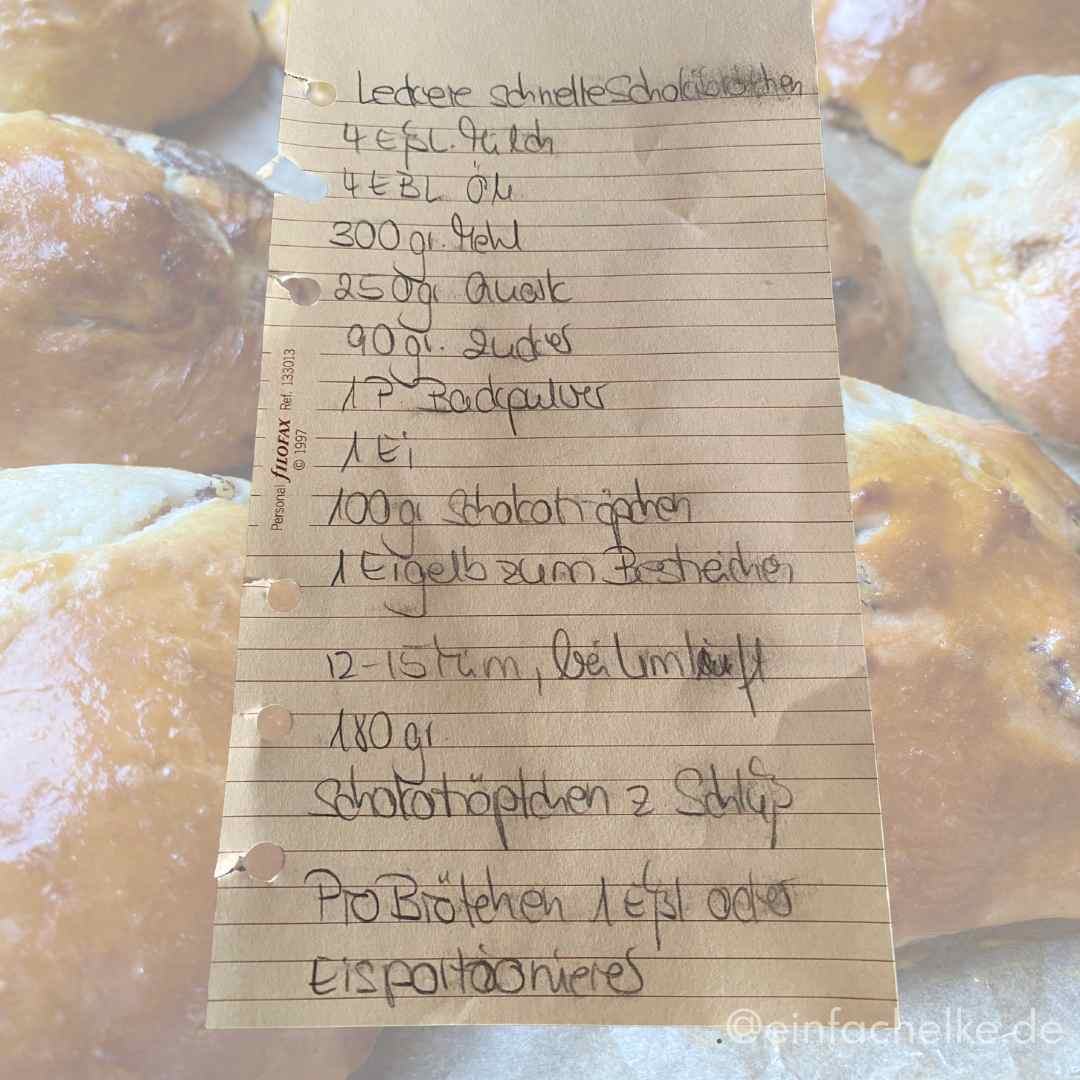 Leckere schnelle Schokobrötchen
4 Eßl. Milch
4 EßL Öl
300 gr. Mehl
250 gr Quark
90 gr. Zucker
1 P Backpulver
1 Ei
100 gr Schokotröpchen
1 Eigelb zum Bestreichen
12-15 min, bei Umluft
180 gr
Schokotröpfchen z Schluß
Pro Brötchen 1 Eßl oder
Eisportionierer
Personal FILOFAX Ref. 133013
© 1997
@einfachelke.de